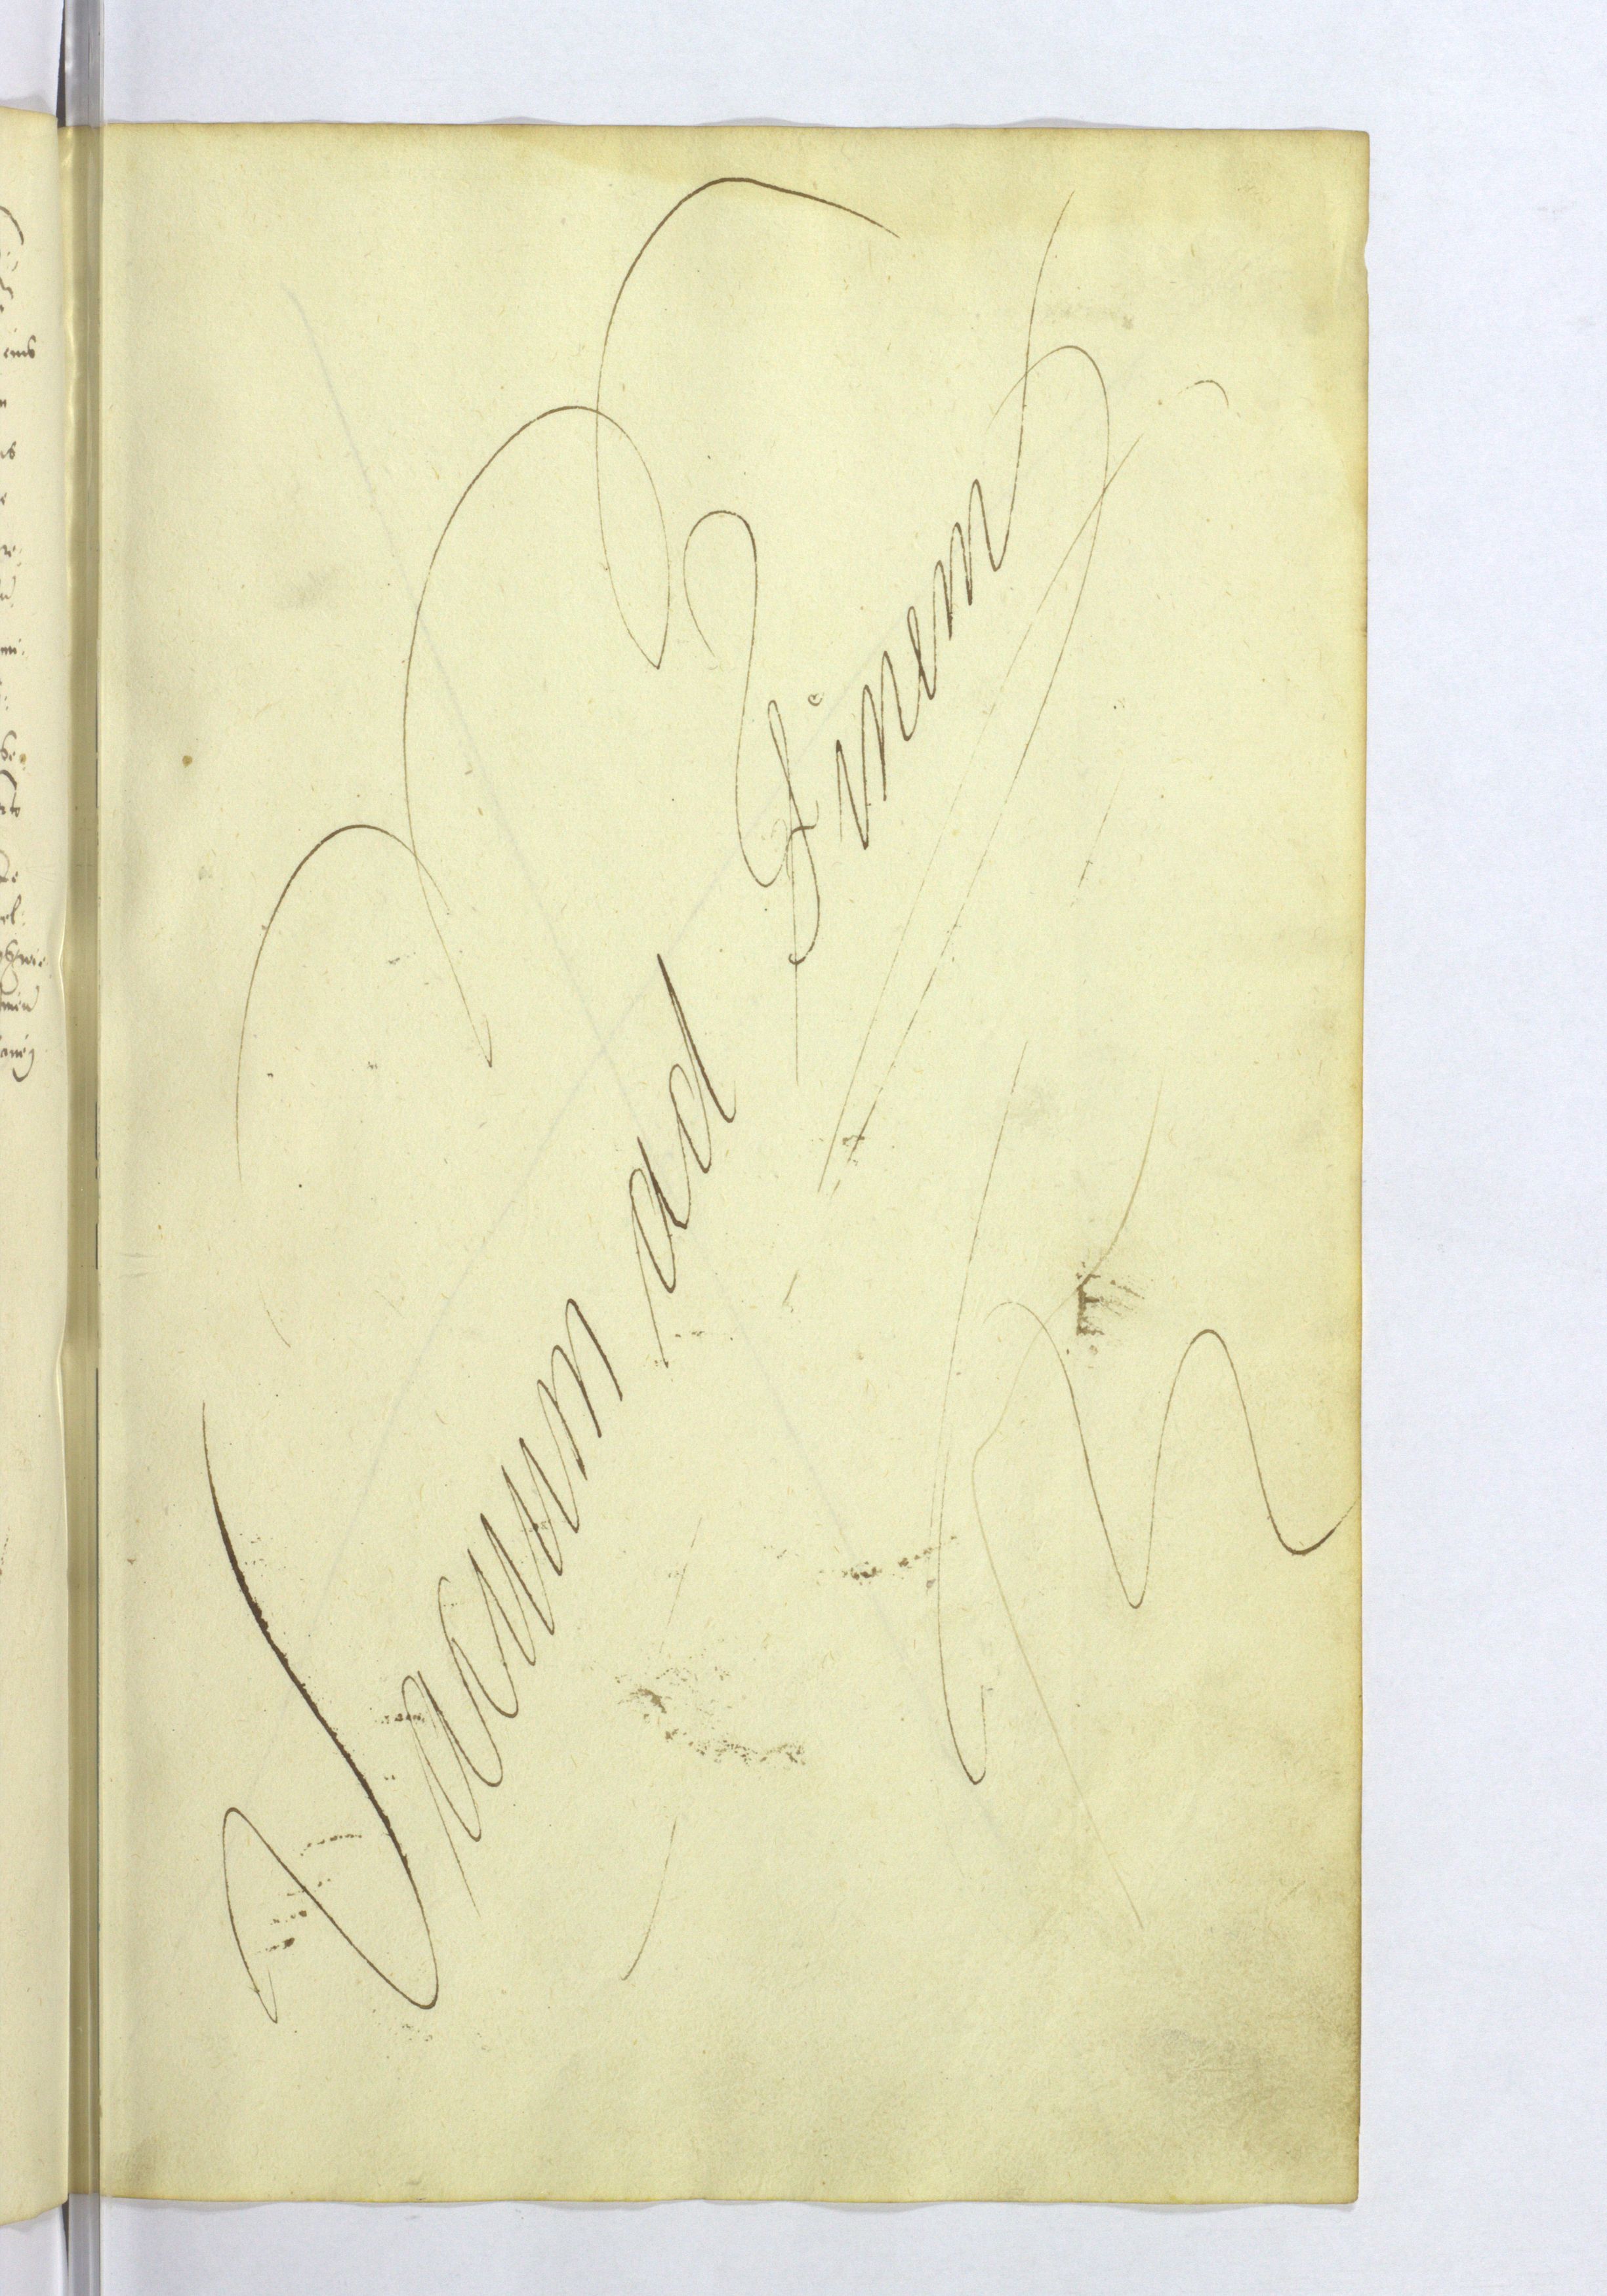 Vacuum ad Finem